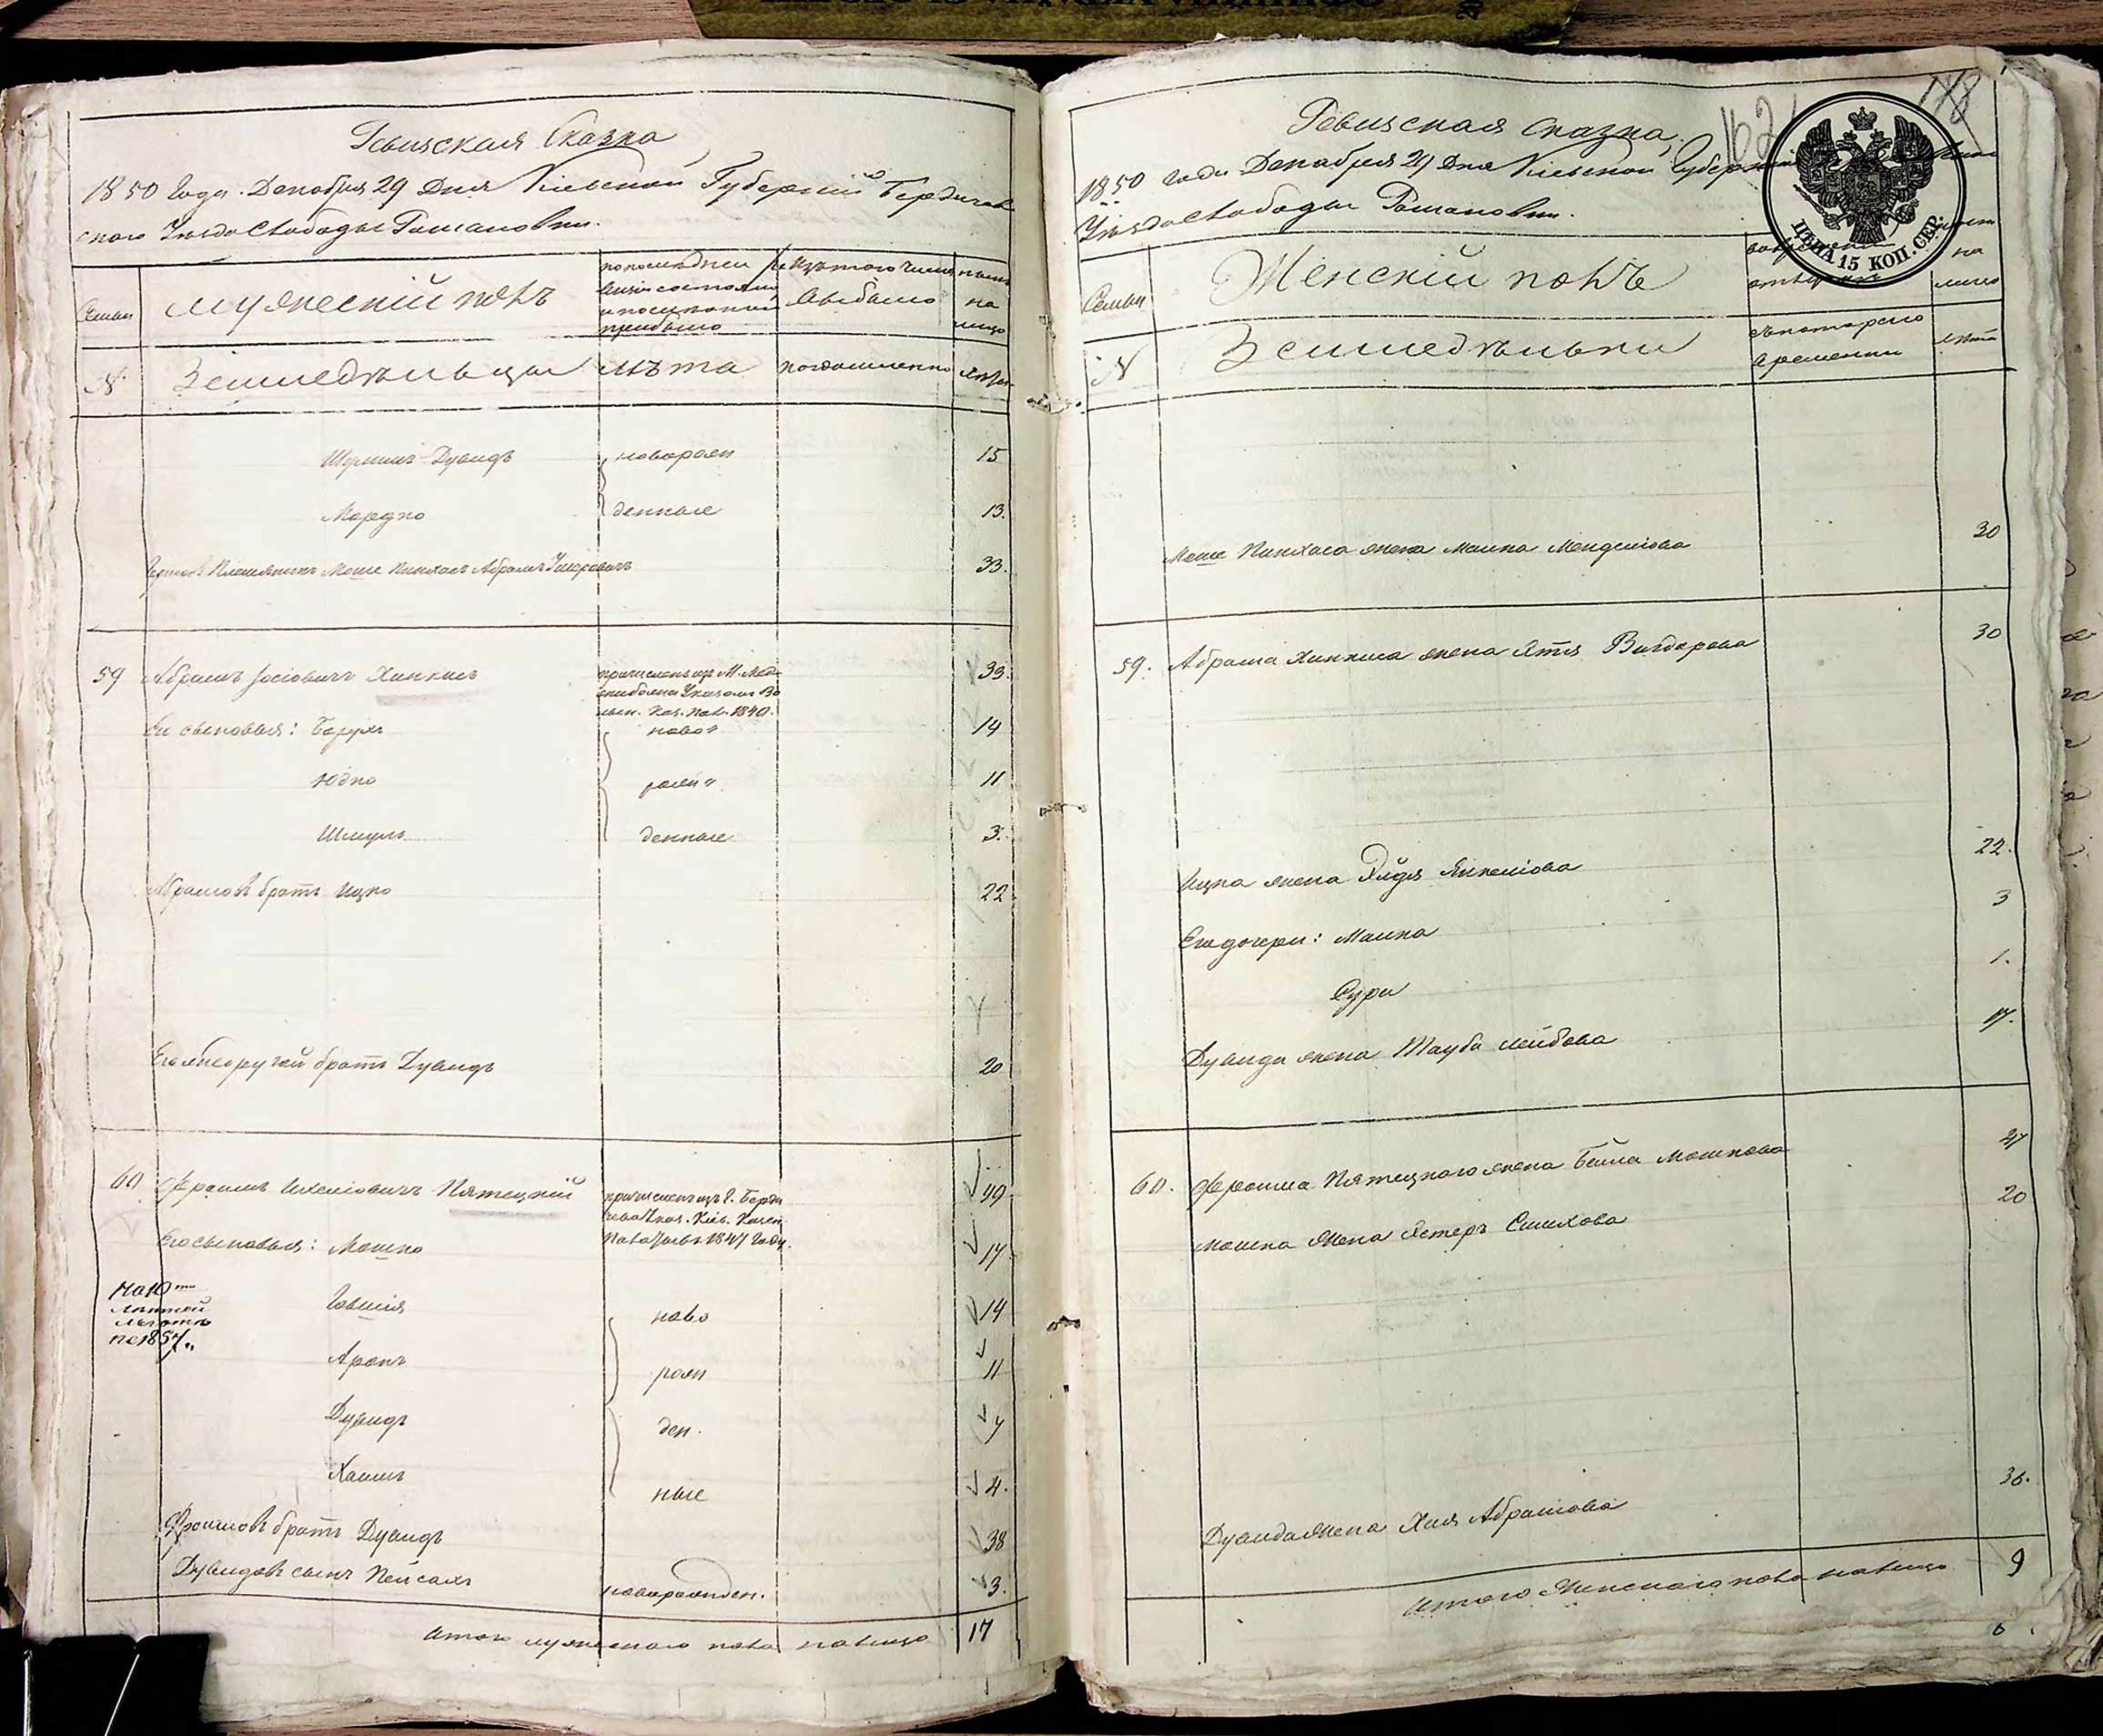 Ревизская Сказка
1850 Года Декабря 29 Дня Кіевской Губерніи Бердичев
ского Уѣзда Слободы Романовки.
Семьи
Мужескій полъ
по последней ре
визіи состояло
и после оной
прибыло
Изъ того числа
выбыло
ныне
на
лицо
№
Земледѣльцы
лѣта
когда именно
лѣта
Шулимъ-Дувидъ новорож 15
Мордко денные 13.
Племянникъ Моше Пинхасъ Абрамъ 33.
59 Абрамъ Іосіовичъ Хинкисъ причисленъ изъ М. 33.
Указомъ Во
лын. Каз. Пал. 1840.
Его сыновья: Борухъ ново" 14
Юдко рож" 11
Шмуль денные 3.
Абрамовъ братъ Ицко 22.
Его другой братъ Дувидъ 20
60 Фроимъ Ихелiовичъ Пятецкій причисленъ изъ Г. Берди 49.
чева Указ. Кіев. Казен.
Палаты въ 1847 Году.
Его сыновья: Мошко 17
На 10ти
летней
льготе
по 1857..
Говшія ново 14
Аронъ рож 11
Дувидъ ден. 7
Хаимъ ные 4.
Фроимовъ братъ Дувидъ 38
Дувидовъ сынъ Пейсахъ новорожден. 3.
Итого мужескаго пола налицо 17
Ревизская Сказка.
1850 года Декабря 29 Дня Кіевской Губерніи
Уѣзда Слободы Романовки.
162
178
ЦѢНА 15 КОП. СЕР.
Семьи
Женскій полъ
на
лицо
№
Земледѣльки
съ котораго
времени
лѣта
Моше Пинхаса жена Малка Менделіова 30
59. Абрама Хинкиса жена Этя Вигдорова 30
Ицка жена Эйдя Янкеліова 22.
Его дочери: Малка 3
Сура 1.
Дувида жена Тауба Лейбова 17.
60. Фроима Пятецкого жена Бейла Мошкова 47
Мошка жена Эстеръ Симхова 20
Дувида жена Хая Абрамова 36.
Итого Женскаго пола налицо 9